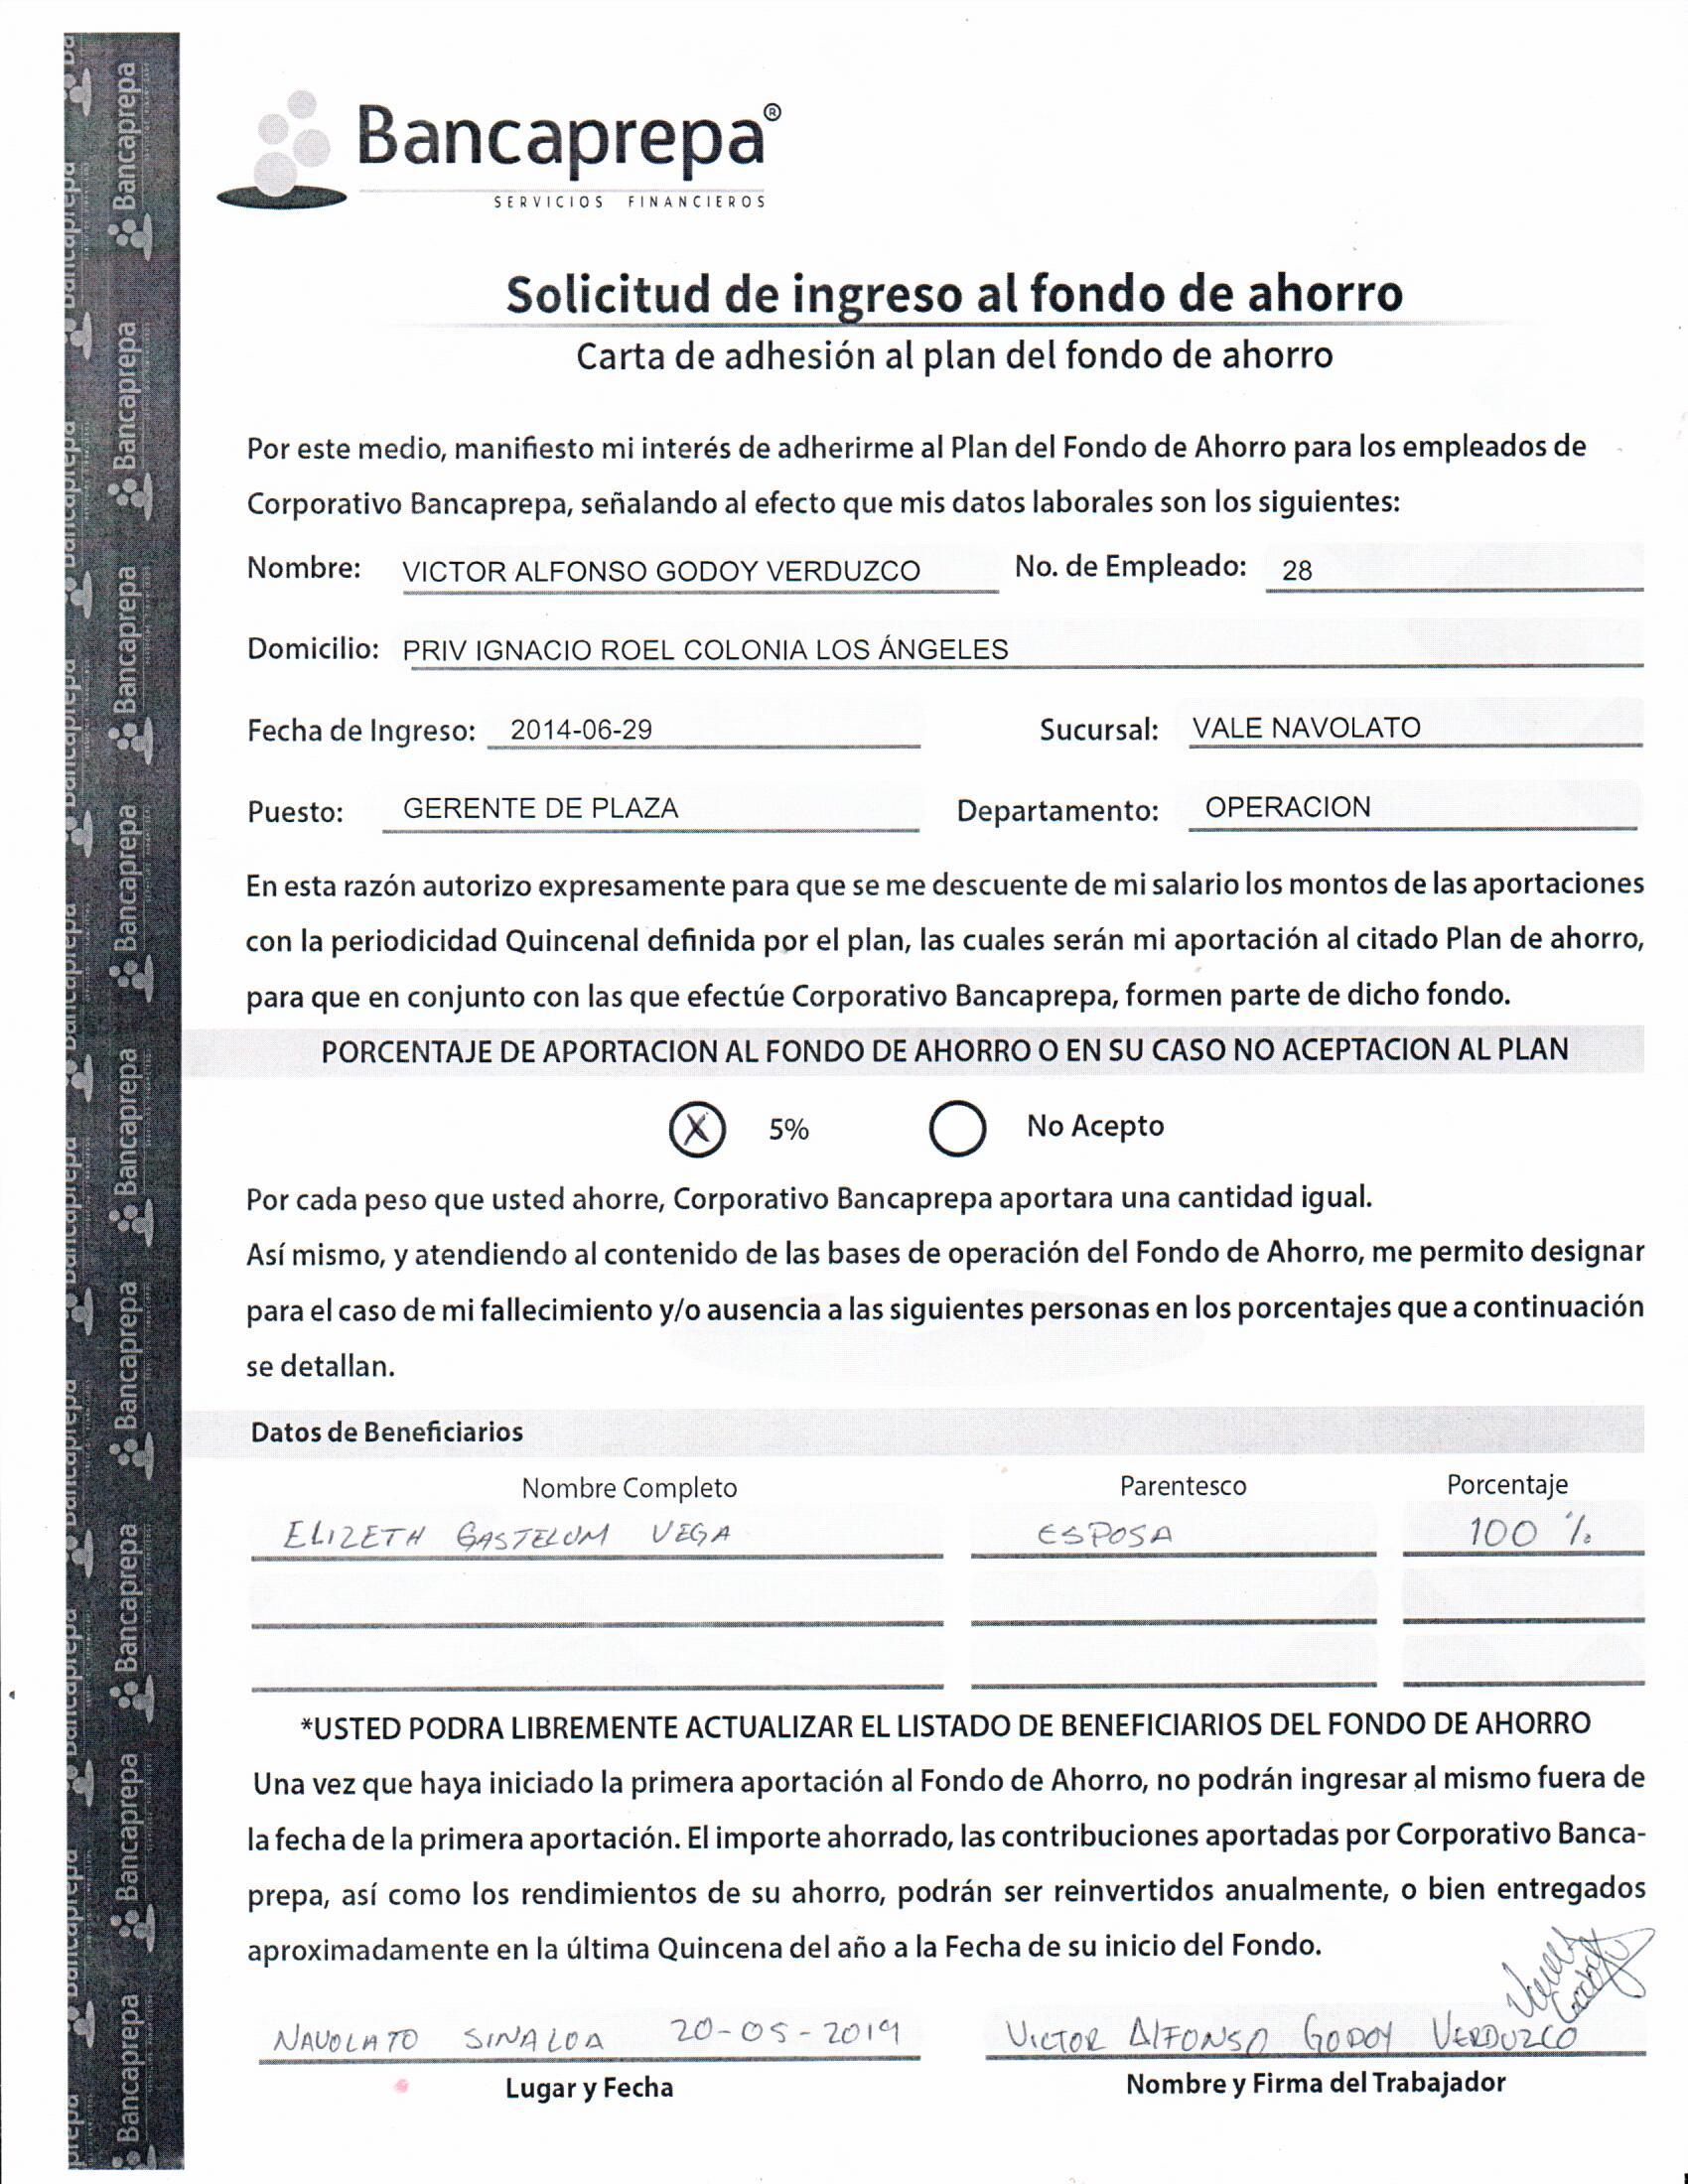 Bancaprepa®
SERVICIOS FINANCIEROS
Solicitud de ingreso al fondo de ahorro
Carta de adhesión al plan del fondo de ahorro
Por este medio, manifiesto mi interés de adherirme al Plan del Fondo de Ahorro para los empleados de
Corporativo Bancaprepa, señalando al efecto que mis datos laborales son los siguientes:
Nombre: VICTOR ALFONSO GODOY VERDUZCO No. de Empleado: 28
Domicilio: PRIV IGNACIO ROEL COLONIA LOS ÁNGELES
Fecha de Ingreso: 2014-06-29 Sucursal: VALE NAVOLATO
Puesto: GERENTE DE PLAZA Departamento: OPERACION
En esta razón autorizo expresamente para que se me descuente de mi salario los montos de las aportaciones
con la periodicidad Quincenal definida por el plan, las cuales serán mi aportación al citado Plan de ahorro,
para que en conjunto con las que efectúe Corporativo Bancaprepa, formen parte de dicho fondo.
PORCENTAJE DE APORTACION AL FONDO DE AHORRO O EN SU CASO NO ACEPTACION AL PLAN
X 5% No Acepto
Por cada peso que usted ahorre, Corporativo Bancaprepa aportara una cantidad igual.
Así mismo, y atendiendo al contenido de las bases de operación del Fondo de Ahorro, me permito designar
para el caso de mi fallecimiento y/o ausencia a las siguientes personas en los porcentajes que a continuación
se detallan.
Datos de Beneficiarios
Nombre Completo Parentesco Porcentaje
ELIZETH GASTELUM VEGA ESPOSA 100 %
*USTED PODRA LIBREMENTE ACTUALIZAR EL LISTADO DE BENEFICIARIOS DEL FONDO DE AHORRO
Una vez que haya iniciado la primera aportación al Fondo de Ahorro, no podrán ingresar al mismo fuera de
la fecha de la primera aportación. El importe ahorrado, las contribuciones aportadas por Corporativo Banca-
prepa, así como los rendimientos de su ahorro, podrán ser reinvertidos anualmente, o bien entregados
aproximadamente en la última Quincena del año a la Fecha de su inicio del Fondo.
NAVOLATO SINALOA 20-05-2019 VICTOR ALFONSO GODOY VERDUZCO
Lugar y Fecha Nombre y Firma del Trabajador